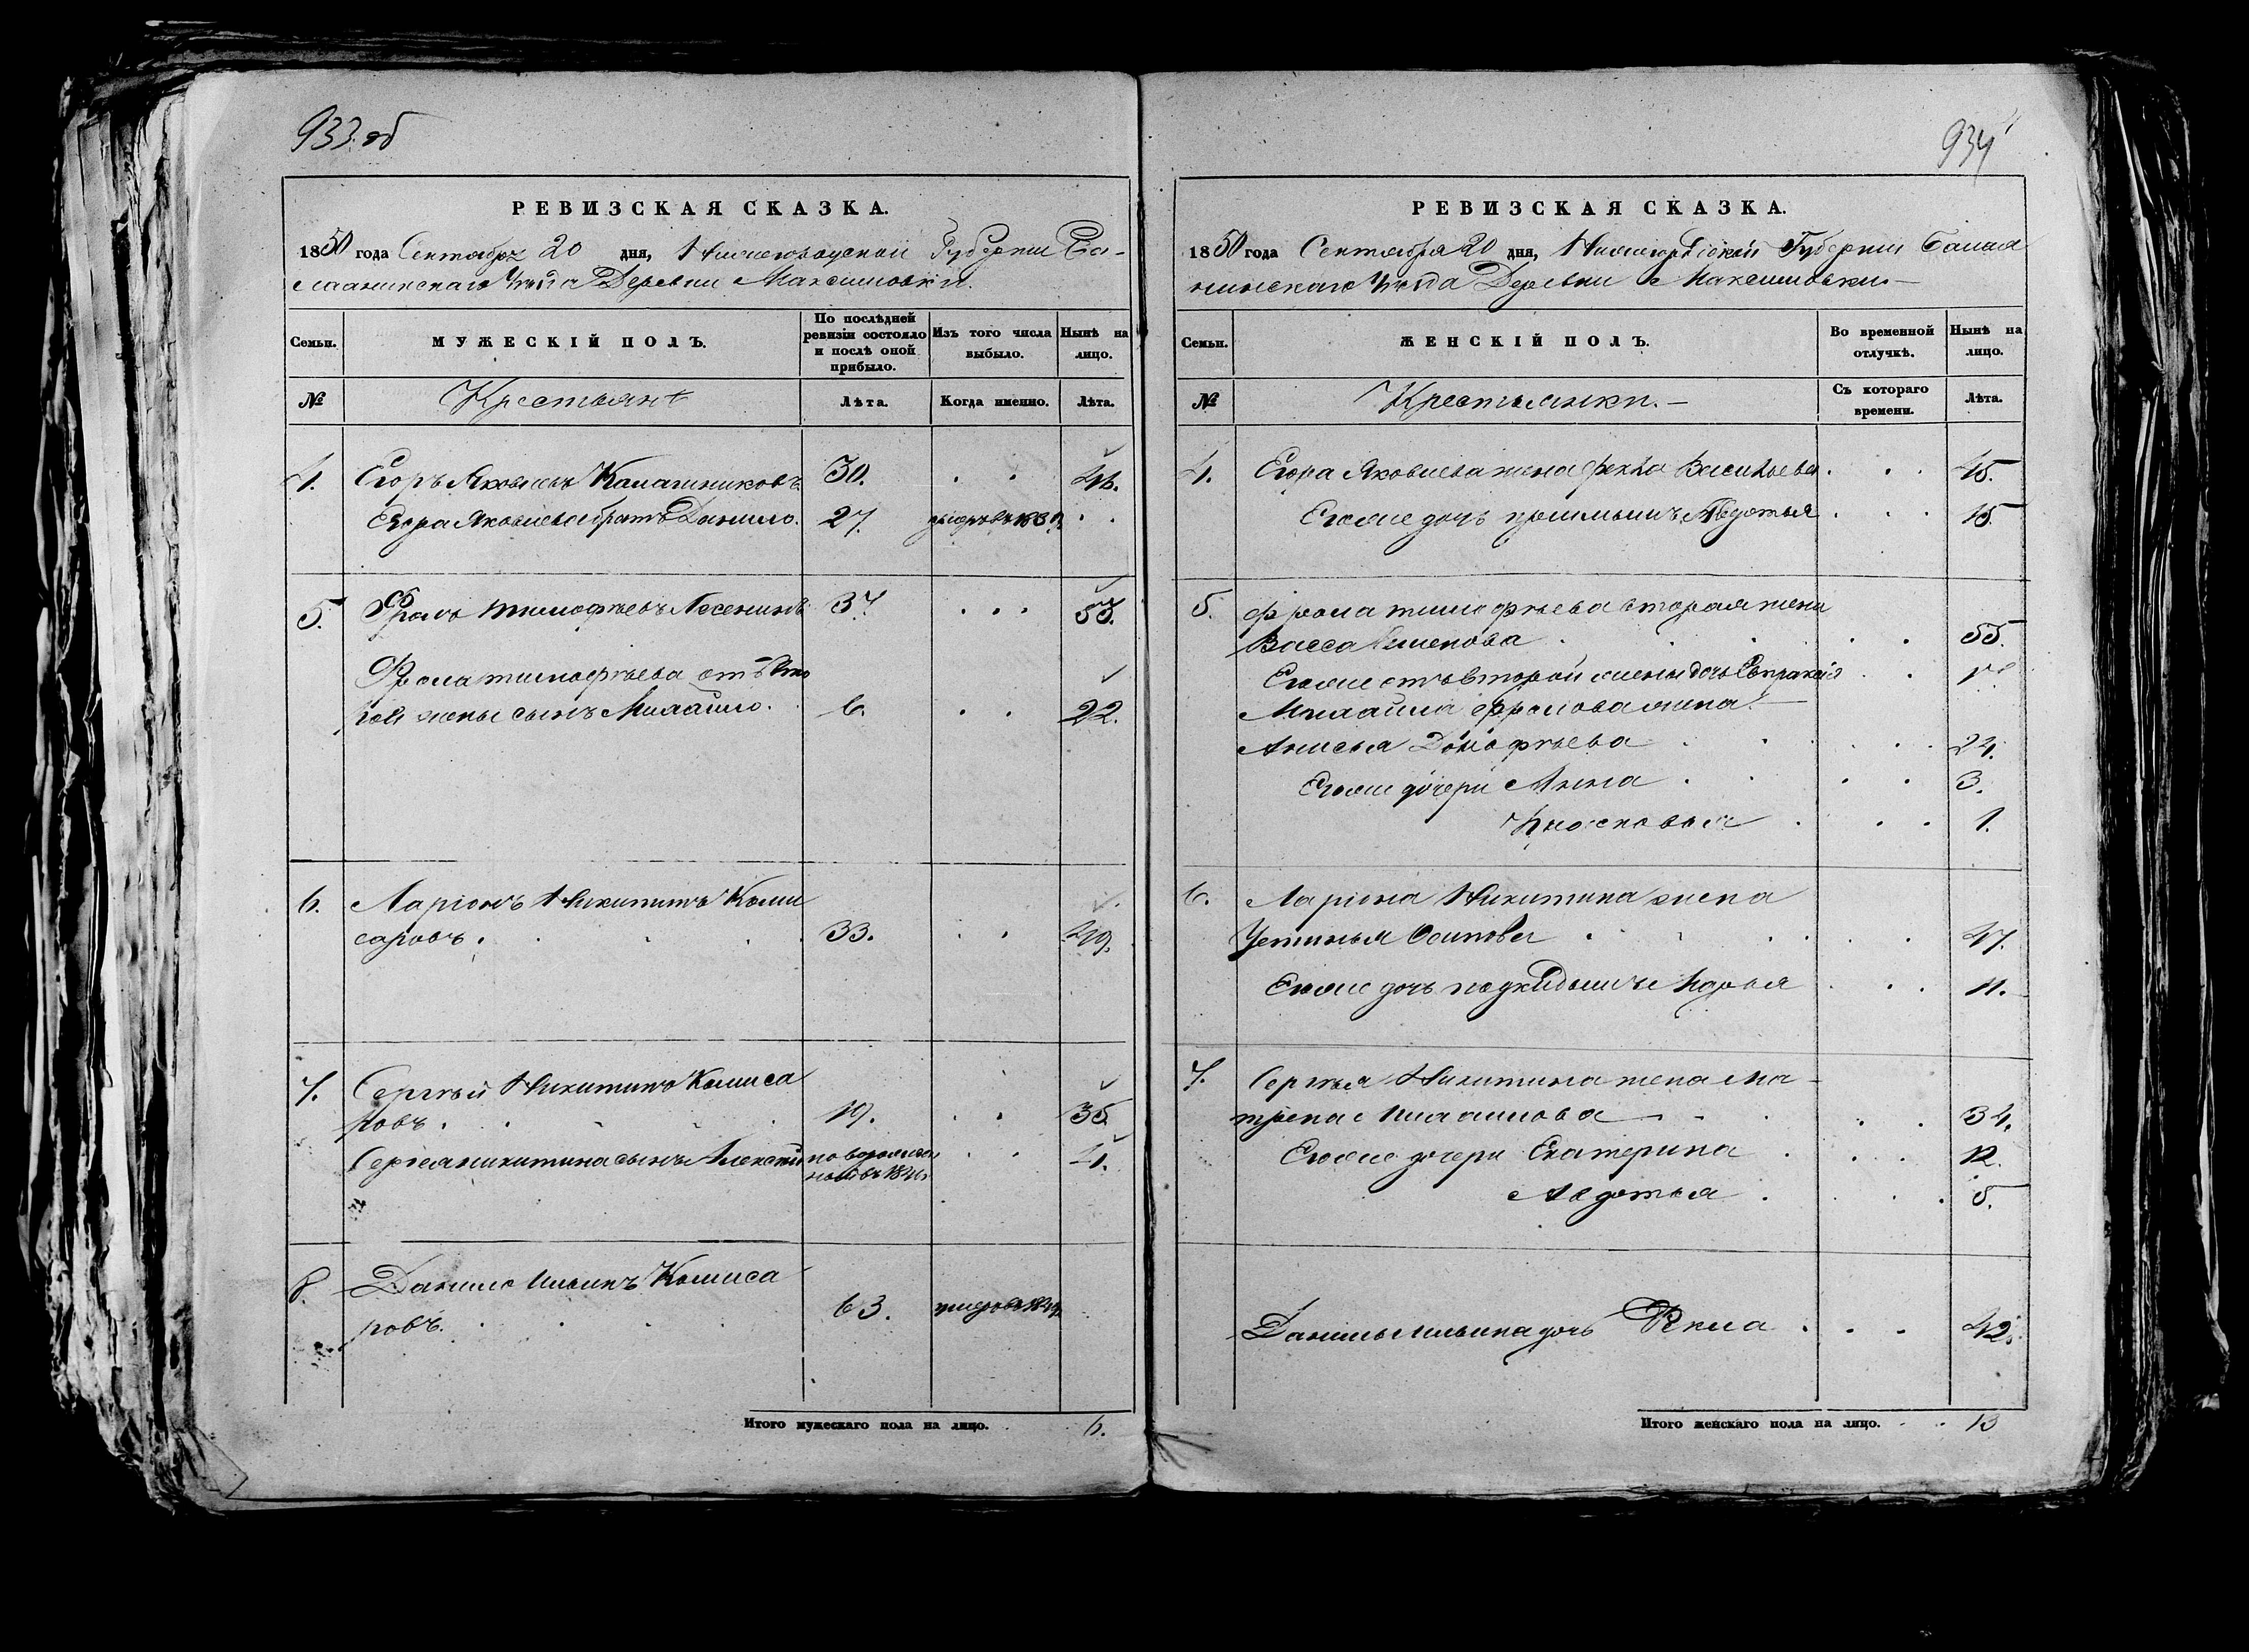 933 об
РЕВИЗСКАЯ СКАЗКА.
1850 года Сентября 20 дня, Нижегородской Губернiи Ба-
лахнинскаго Уѣзда Деревни Максимовки.
Семьи.
МУЖЕСКІЙ ПОЛЪ.
По послѣдней ревизіи состояло и послѣ оной прибыло.
Изъ того числа выбыло.
Нынѣ на лицо.
№
Крестьяне
Лѣта.
Когда именно.
Лѣта.
4. Егоръ Яковлевъ Калашниковъ. 30. 46.
Егора Яковлева братъ Данило. 27.
5. Фролъ Тимофѣевъ 37. 53.
Фрола Тимофѣева отъ вто
рой жены сынъ Михайло. 6. 22.
6. Ларіонъ Никитинъ Коми
саровъ. 33. 49.
7. Сергѣй Никитинъ Комиса
ровъ. 19. 35
Сергея Никитина сынъ Алексѣй 4.
8. Данило Ильинъ Комиса
ровъ. 63.
Итого мужескаго пола на лицо. 6.
934
РЕВИЗСКАЯ СКАЗКА.
1850 года Сентября 20 дня, Нижегородской Губернiи Балах
нинскаго Уѣзда Деревни Максимовки.—
Семьи.
ЖЕНСКІЙ ПОЛЪ.
Во временной отлучкѣ.
Нынѣ на лицо.
№
Крестьянки.—
Съ котораго времени.
Лѣта.
4. Егора Яковлева жена Фекла Васильева 45.
Егоже дочь Авдотья 15.
5. Фрола Тимофѣева вторая жена
Васса 55.
Егоже отъ второй жены дочь
Михайла Фролова жена
Анисья 24.
Егоже дочери Анна 3.
1.
6. Ларіона Никитина жена
Устинья Осипова 47.
Егоже дочь подкидышъ Марья 11.
7. Сергѣя Никитина жена Ма-
трена Михайлова 34.
Егоже дочери Екатерина 12.
Авдотья 5.
Данилы Ильина дочь Фекла 42.
Итого женскаго пола на лицо. 13